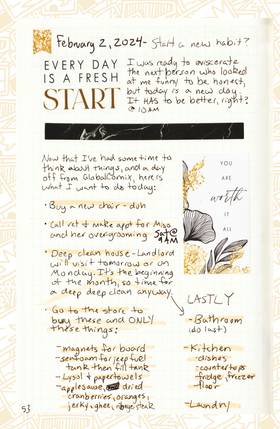 February 2, 2024- Start a new habit?
EVERY DAY
IS A FRESH
START
I was ready to eviscerate
the next person who looked
at me funny to be honest,
but today is a new day.
It HAS to be better, right?
@ 10AM
Now that I've had some time to
think about things, and a day
off from GlobalComix, here's
what I want to do today:
• Buy a new chair - doh
• Call vet & make appt for Miso
and her overgrooming
Sat @
9AM
• Deep clean house - Landlord
will visit tomorrow or on
Monday. It's the beginning
of the month, so time for
a deep deep clean anyway
• Go to the store to
buy these and ONLY
these things:
- magnets for board
- seafoam for jeep fuel
tank then fill tank
- Lysol & papertowels
- applesauce, dried
cranberries, oranges,
jerky, ghee, steak
YOU
ARE
worth
IT
ALL
LASTLY
- Bathroom
(do last)
- Kitchen
- dishes
- countertops
- fridge, freezer
- floor
- Laundry
53